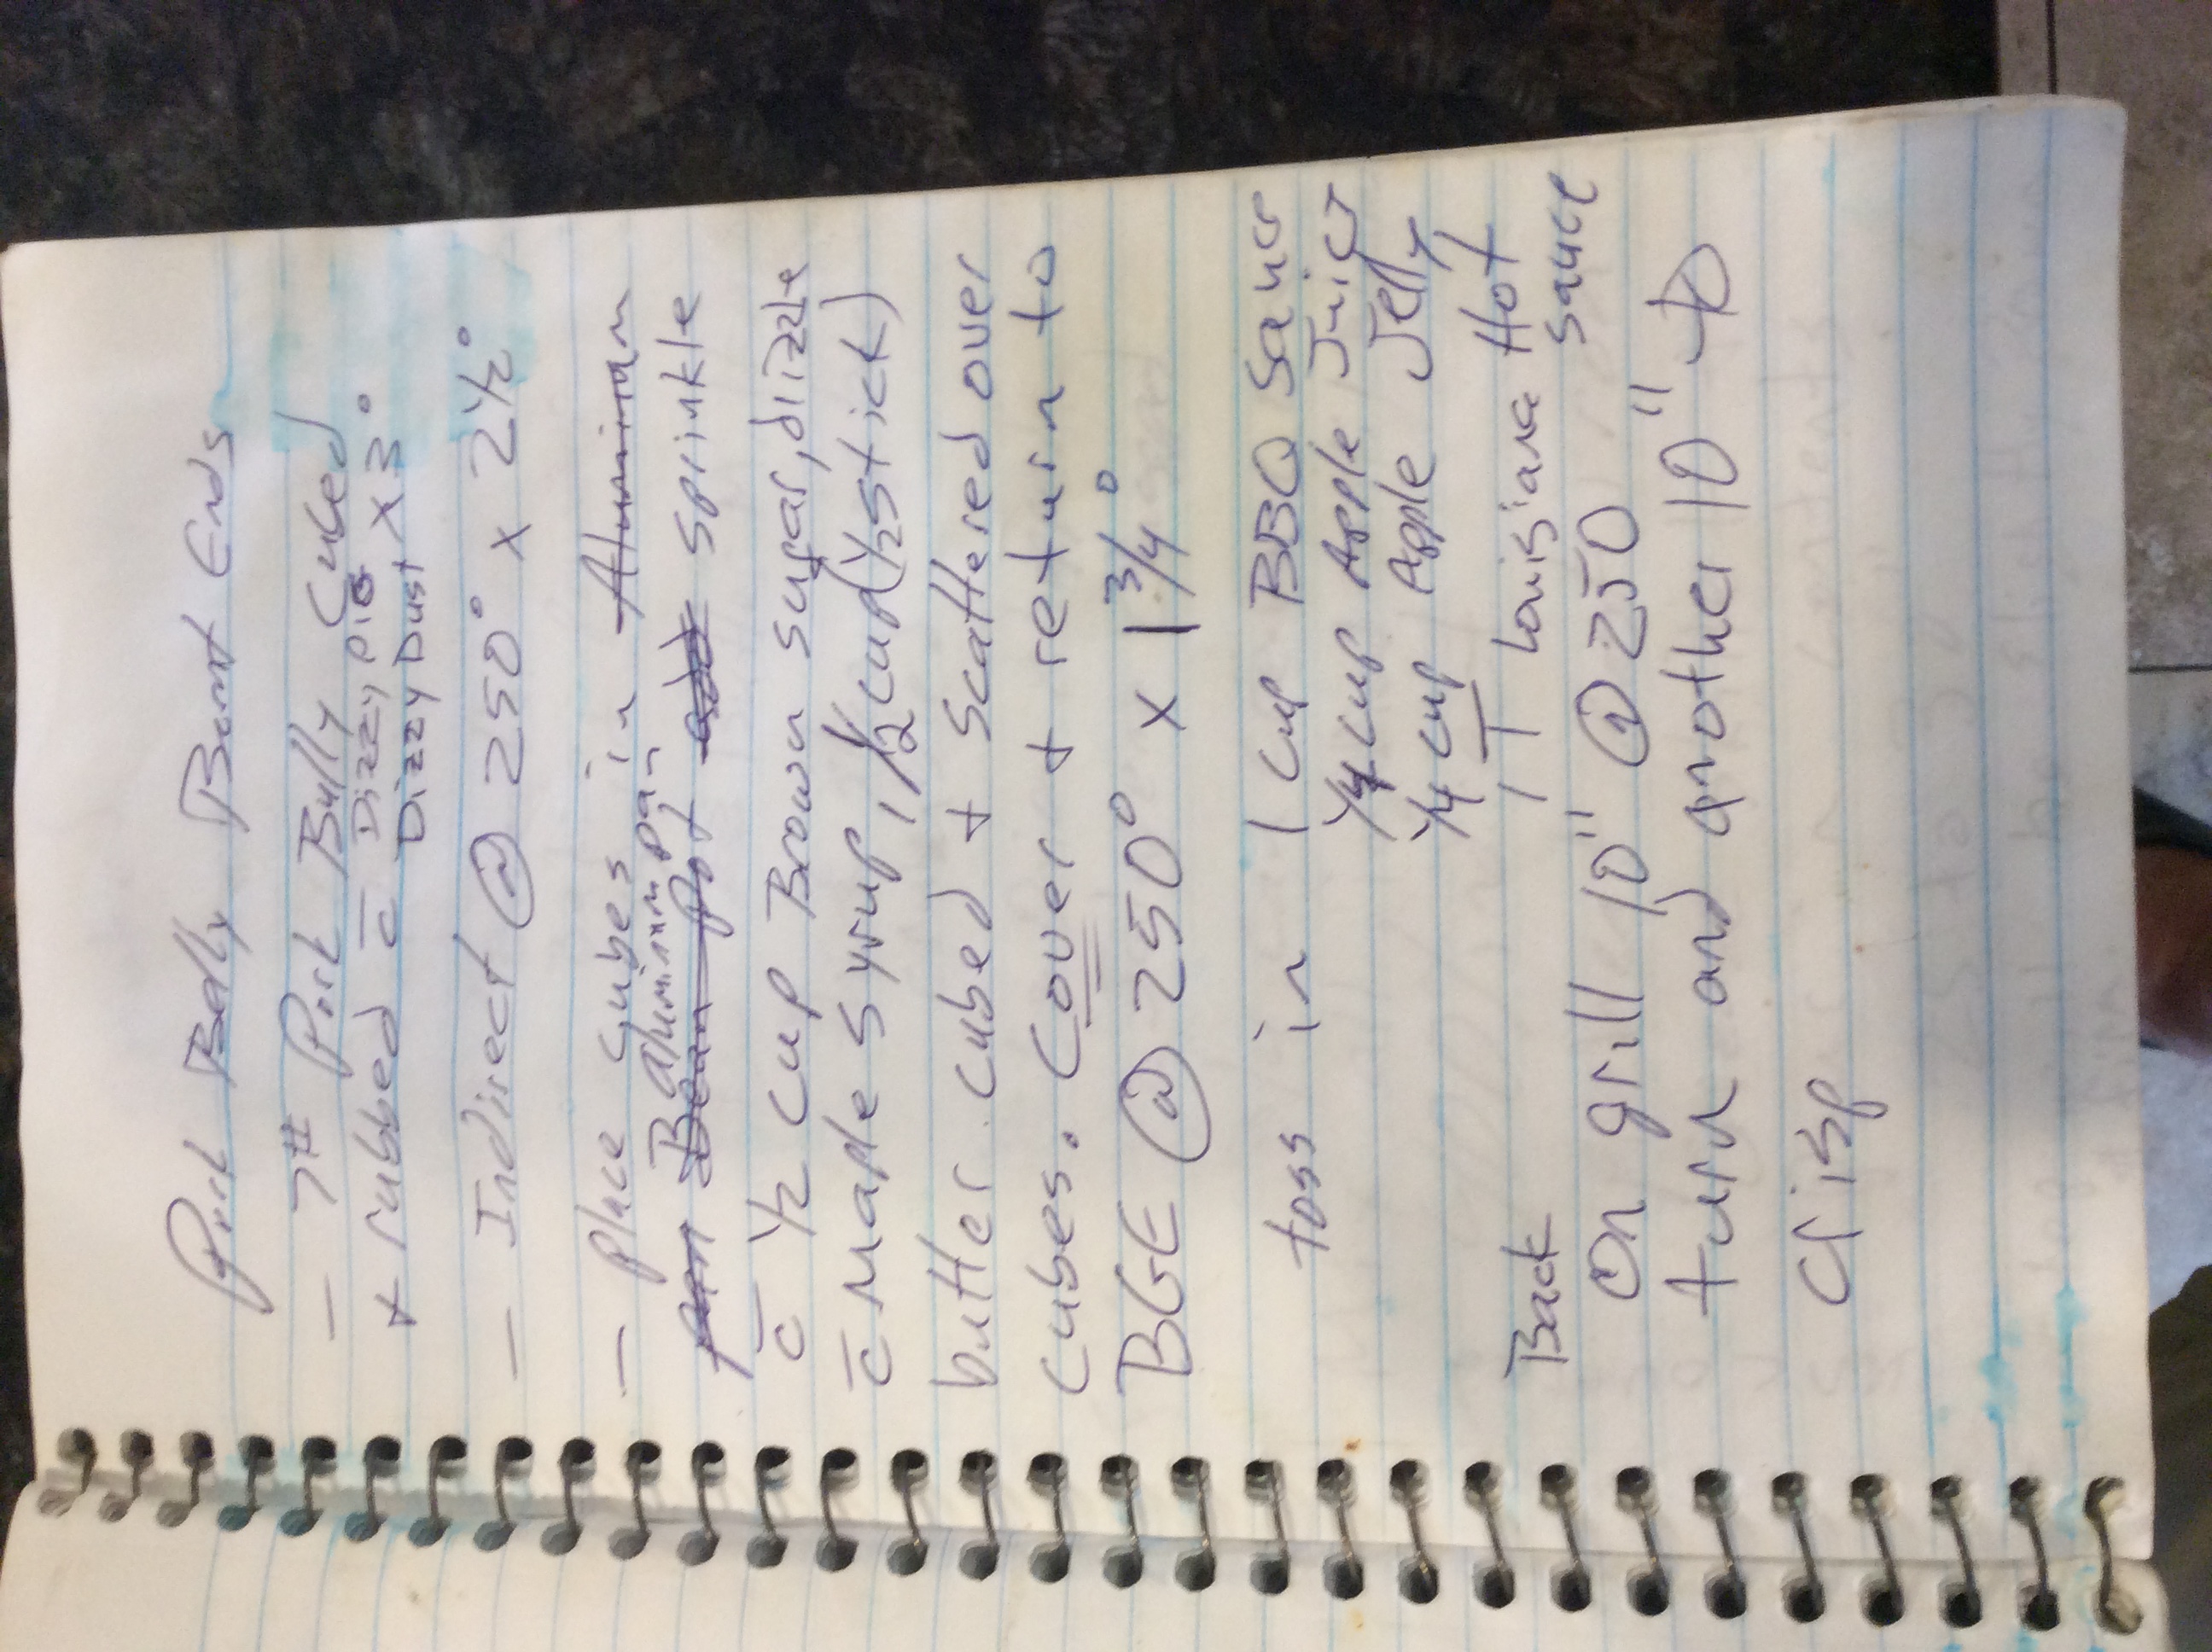 Pork Belly Burnt Ends
- 7# Pork Bully Cubed
+ rubbed c̄ Dizzy Pig
Dizzy Dust x 3°
- Indirect @ 250° x 2½°
- place cubes in Aluminan
aluminum pan
pan Bean pot add sprinkle
c̄ ½ cup Brown sugar, drizzle
c̄ Maple syrup, ½ cup (½ stick)
butter cubed + scattered over
cubes. Cover + return to
BGE @ 250° x 1 3/4°
toss in 1 cup BBQ Sauce
¼ cup Apple Juice
¼ cup Apple Jelly
1 T Louisiana Hot
sauce
Back
on grill 10" @ 250
turn and another 10" to
crisp